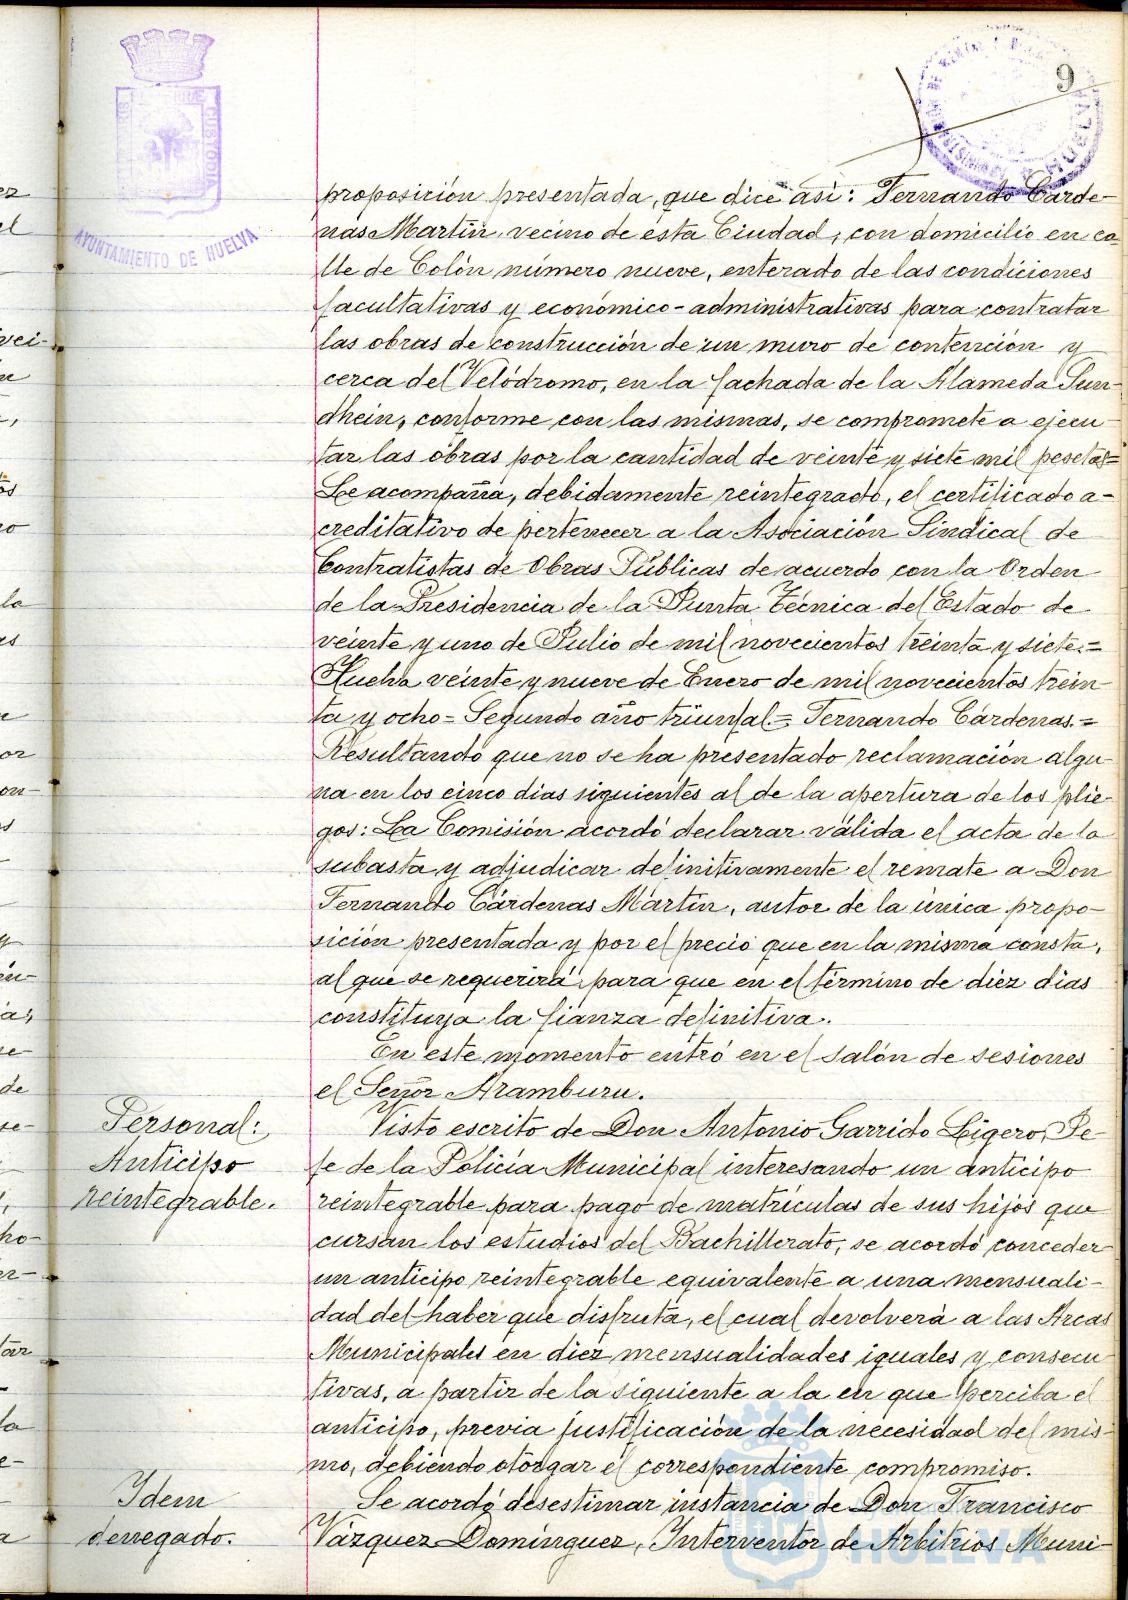 9
AYUNTAMIENTO DE HUELVA
HUELVA
proposición presentada, que dice asi: Fernando Cárde-
nas Martín, vecino de esta Ciudad, con domicilio en ca-
lle de Colón número nueve, enterado de las condiciones
facultativas y económico-administrativas para contratar
las obras de construcción de un muro de contención y
cerca del Velódromo, en la fachada de la Alameda Sun-
dhein, conforme con las mismas, se compromete a ejecu-
tar las obras por la cantidad de veinte y siete mil pesetas=
Se acompaña, debidamente reintegrado, el certificado a-
creditativo de pertenecer a la Asociación Sindical de
Contratistas de Obras Públicas de acuerdo con la Orden
de la Presidencia de la Junta Técnica del Estado de
veinte y uno de Julio de mil novecientos treinta y siete.=
Huelva veinte y nueve de Enero de mil novecientos trein-
ta y ocho= Segundo año triunfal.= Fernando Cárdenas.=
Resultando que no se ha presentado reclamación algu-
na en los cinco dias siguientes al de la apertura de los plie-
gos: La Comisión acordó declarar válida el acta de la
subasta y adjudicar definitivamente el remate a Don
Fernando Cárdenas Martín, autor de la única propo-
sición presentada y por el precio que en la misma consta,
al que se requerirá para que en el término de diez dias
constituya la fianza definitiva.
En este momento entró en el salón de sesiones
el Señor Aramburu.
Personal:
Anticipo
reintegrable.
Visto escrito de Don Antonio Garrido Ligero, Je-
fe de la Policía Municipal interesando un anticipo
reintegrable para pago de matrículas de sus hijos que
cursan los estudios del Bachillerato, se acordó conceder
un anticipo reintegrable equivalente a una mensuali-
dad del haber que disfruta, el cual devolverá a las Arcas
Municipales en diez mensualidades iguales y consecu-
tivas, a partir de la siguiente a la en que perciba el
anticipo, previa justificación de la necesidad del mis-
mo, debiendo otorgar el correspondiente compromiso.
Idem
denegado.
Se acordó desestimar instancia de Don Francisco
Vázquez Domínguez, Interventor de Arbitrios Muni-
HUELVA